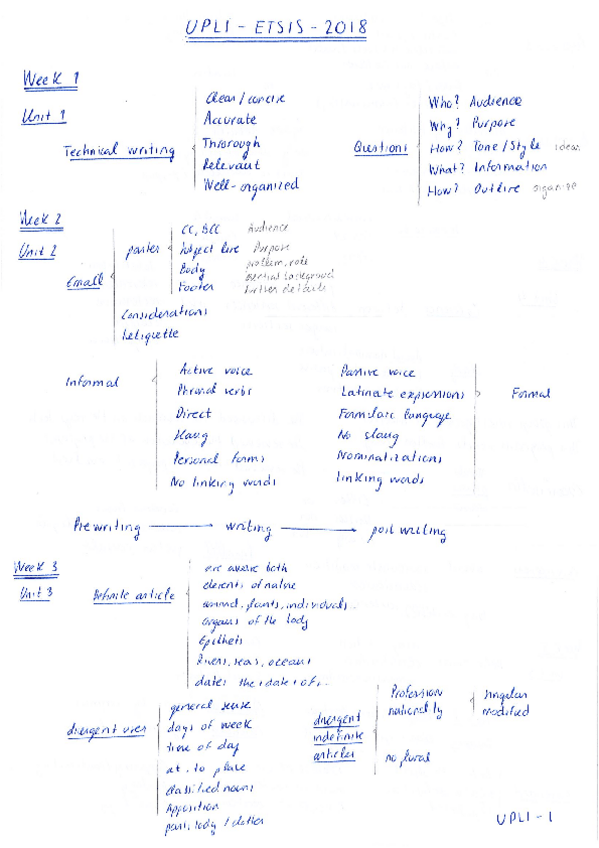 UPLI - ETSIS - 2018
Week 1
Unit 1
Technical writing
Clear / concise
Accurate
Thorough
Relevant
Well-organized
Questions
Who? Audience
Why? Purpose
How? Tone / Style ideas
What? Information
How? Outline organize
Week 2
Unit 2
Email
parts
CC, BCC Audience
Subject line Purpose
Body problem, note
essential background
Footer further details
Considerations
Netiquette
Informal
Active voice
Phrasal verbs
Direct
Slang
Personal forms
No linking words
Passive voice
Latinate expressions
Formulaic language
No slang
Nominalizations
linking words
Formal
Prewriting → writing → post writing
Week 3
Unit 3
Definite article
are aware both
elements of nature
animal, plants, individuals...
Organs of the body
Epithets
Rivers, seas, oceans
dates the (date) of...
divergent uses
general sense
days of week
time of day
at, to place
classified nouns
Apposition
parts body / clothes
divergent
indefinite
articles
Profession
nationality
singular
modified
no plural
UPLI - 1